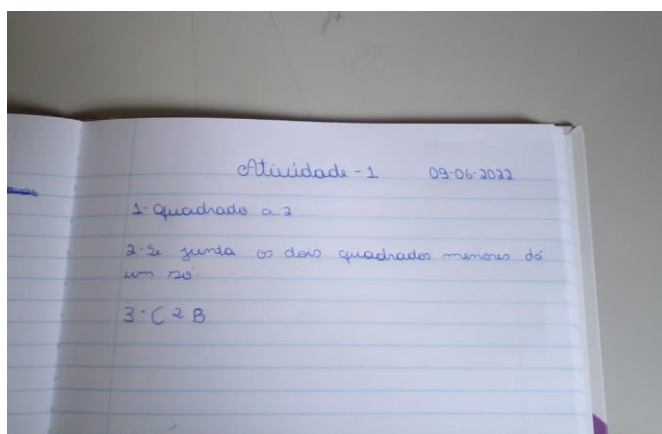 Atividade - 1 09-06-2022
1- Quadrado a 2
2- Se junta os dois quadrados menores dá
um só.
3- C 2 B